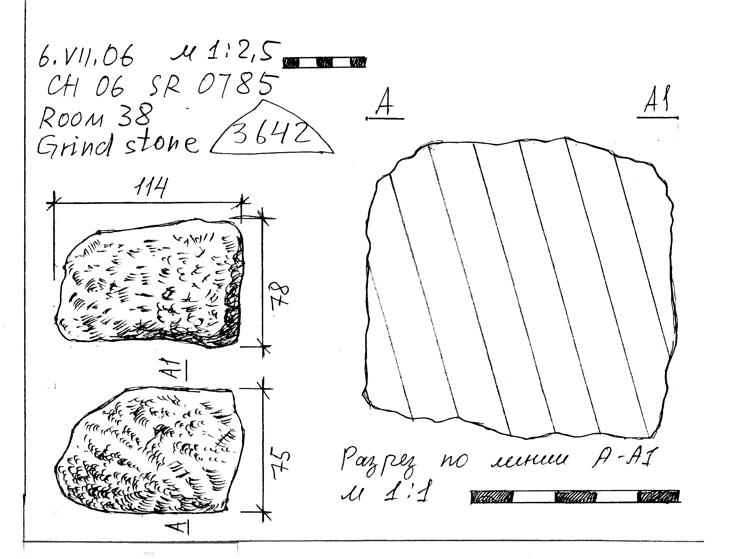 6.VII.06 М 1:2,5
CH 06 SR 0785
Room 38
Grind stone 3642
A A1
114
78
A1
75
A
Разрез по линии А-А1
М 1:1